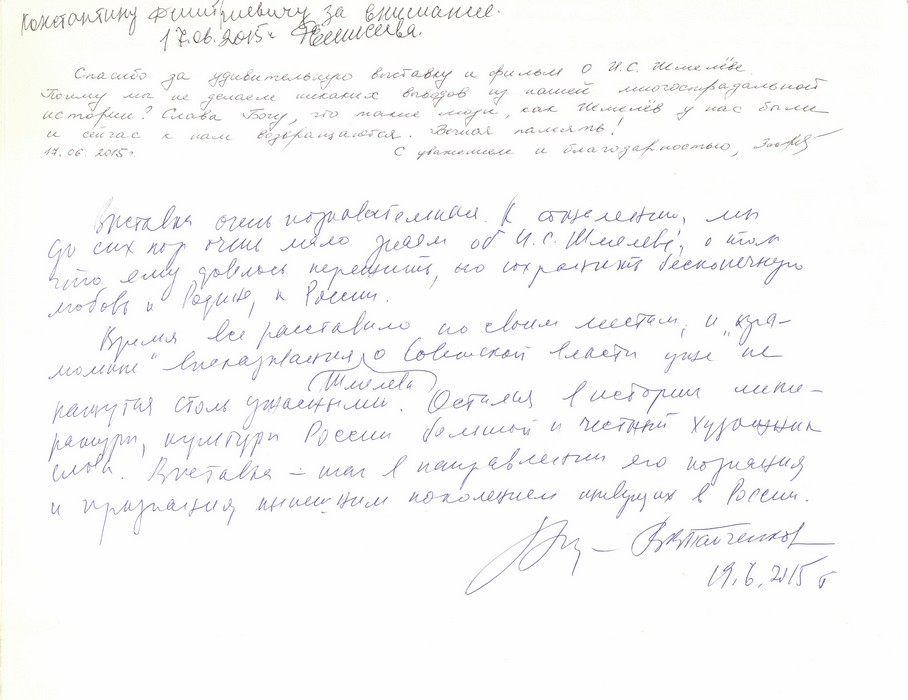 Константину Дмитриевичу за внимание.
17.06.2015г.
Спасибо за удивительную выставку и фильм о И.С. Шмелёве.
Почему мы не делаем никаких выводов из нашей многострадальной
истории? Слава Богу, что такие люди, как Шмелёв у нас были
и сейчас к нам возвращаются. Вечная память!
17.06.2015г. С уважением и благодарностью,
Выставка очень познавательная. К сожалению, мы
до сих пор очень мало знаем об И.С. Шмелеве, о том
что ему довелось пережить, но сохранить бесконечную
любовь к Родине, к России.
Время все расставило по своим местам, и „кра-
мольные“ высказывания Шмелева о Советской власти уже не
кажутся столь ужасными. Остался в истории лите-
ратуры, культуры России большой и честный художник
слова. Выставка – шаг в направлении его познания
и признания нынешним поколением живущих в России.
19.6.2015 г